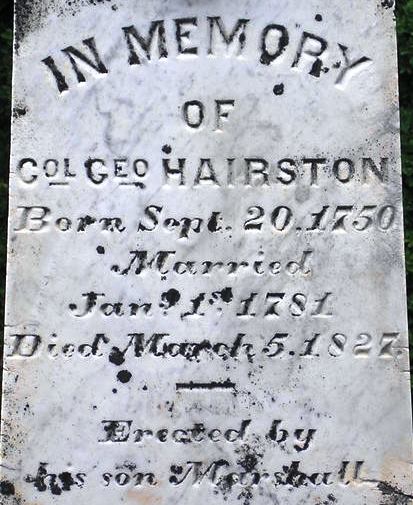 IN MEMORY
OF
COL GEO HAIRSTON
Born Sept. 20. 1750
Married
Jany 1st 1781
Died March 5. 1827
Erected by
his son Marshall